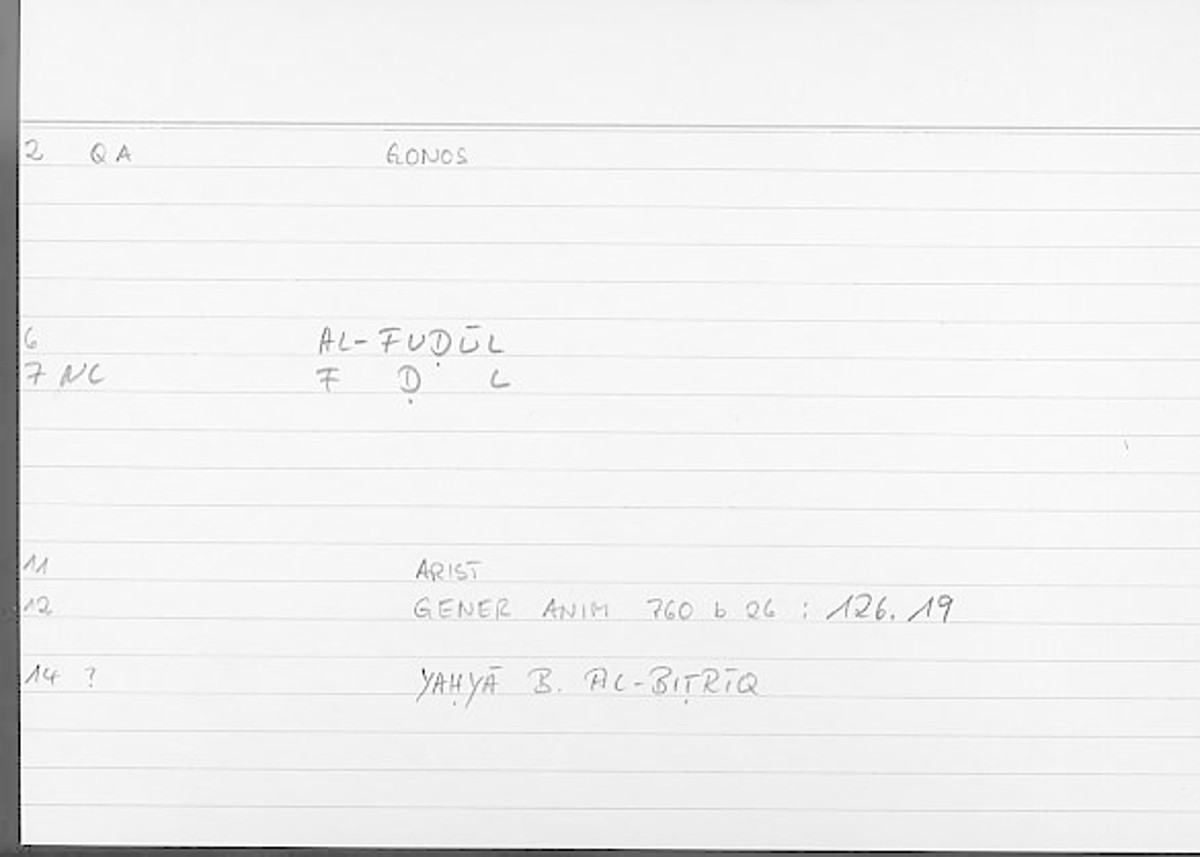 2 QA GONOS
6 AL-FUḌŪL
7 NC F Ḍ L
11 ARIST
12 GENER ANIM 760 b 26 : 126.19
14 ? YAḤYĀ B. AL-BIṬRĪQ